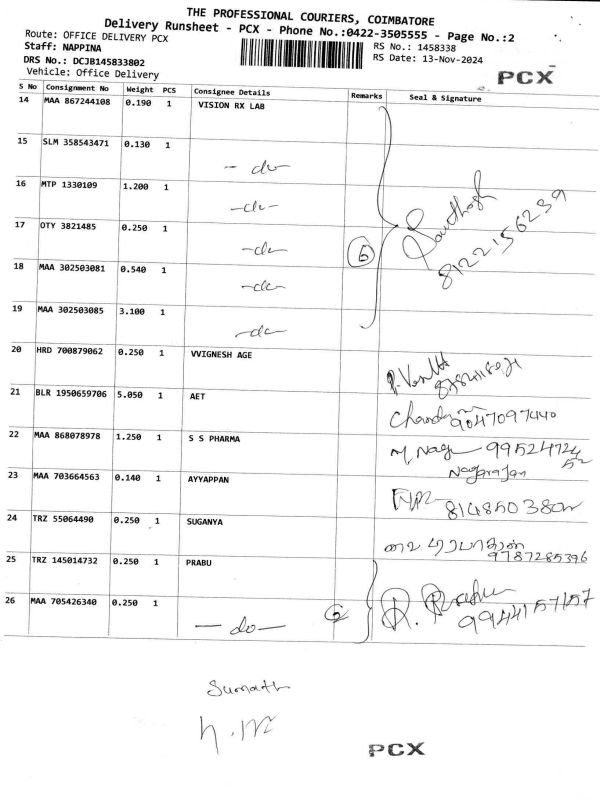 THE PROFESSIONAL COURIERS, COIMBATORE
Delivery Runsheet - PCX - Phone No.:0422-3505555 - Page No.:2
Route: OFFICE DELIVERY PCX
RS No.: 1458338
Staff: NAPPINA
RS Date: 13-Nov-2024
DRS No.: DCJB145833802
Vehicle: Office Delivery
PCX
S No Consignment No Weight PCS Consignee Details Remarks Seal & Signature
14 MAA 867244108 0.190 1 VISION RX LAB
15 SLM 358543471 0.130 1 - do -
16 MTP 1330109 1.200 1 - do -
17 OTY 3821485 0.250 1 - do - 6 Santhosh 8122156239
18 MAA 302503081 0.540 1 - do -
19 MAA 302503085 3.100 1 - do -
20 HRD 700879062 0.250 1 VVIGNESH AGE
21 BLR 1950659706 5.050 1 AET 9047097440
22 MAA 868078978 1.250 1 S S PHARMA M. Naga 9952472452
Nagarajan
23 MAA 703664563 0.140 1 AYYAPPAN
24 TRZ 55064490 0.250 1 SUGANYA 9787285396
25 TRZ 145014732 0.250 1 PRABU R. Prabu
9944157157
26 MAA 705426340 0.250 1 - do -
Sumath
PCX